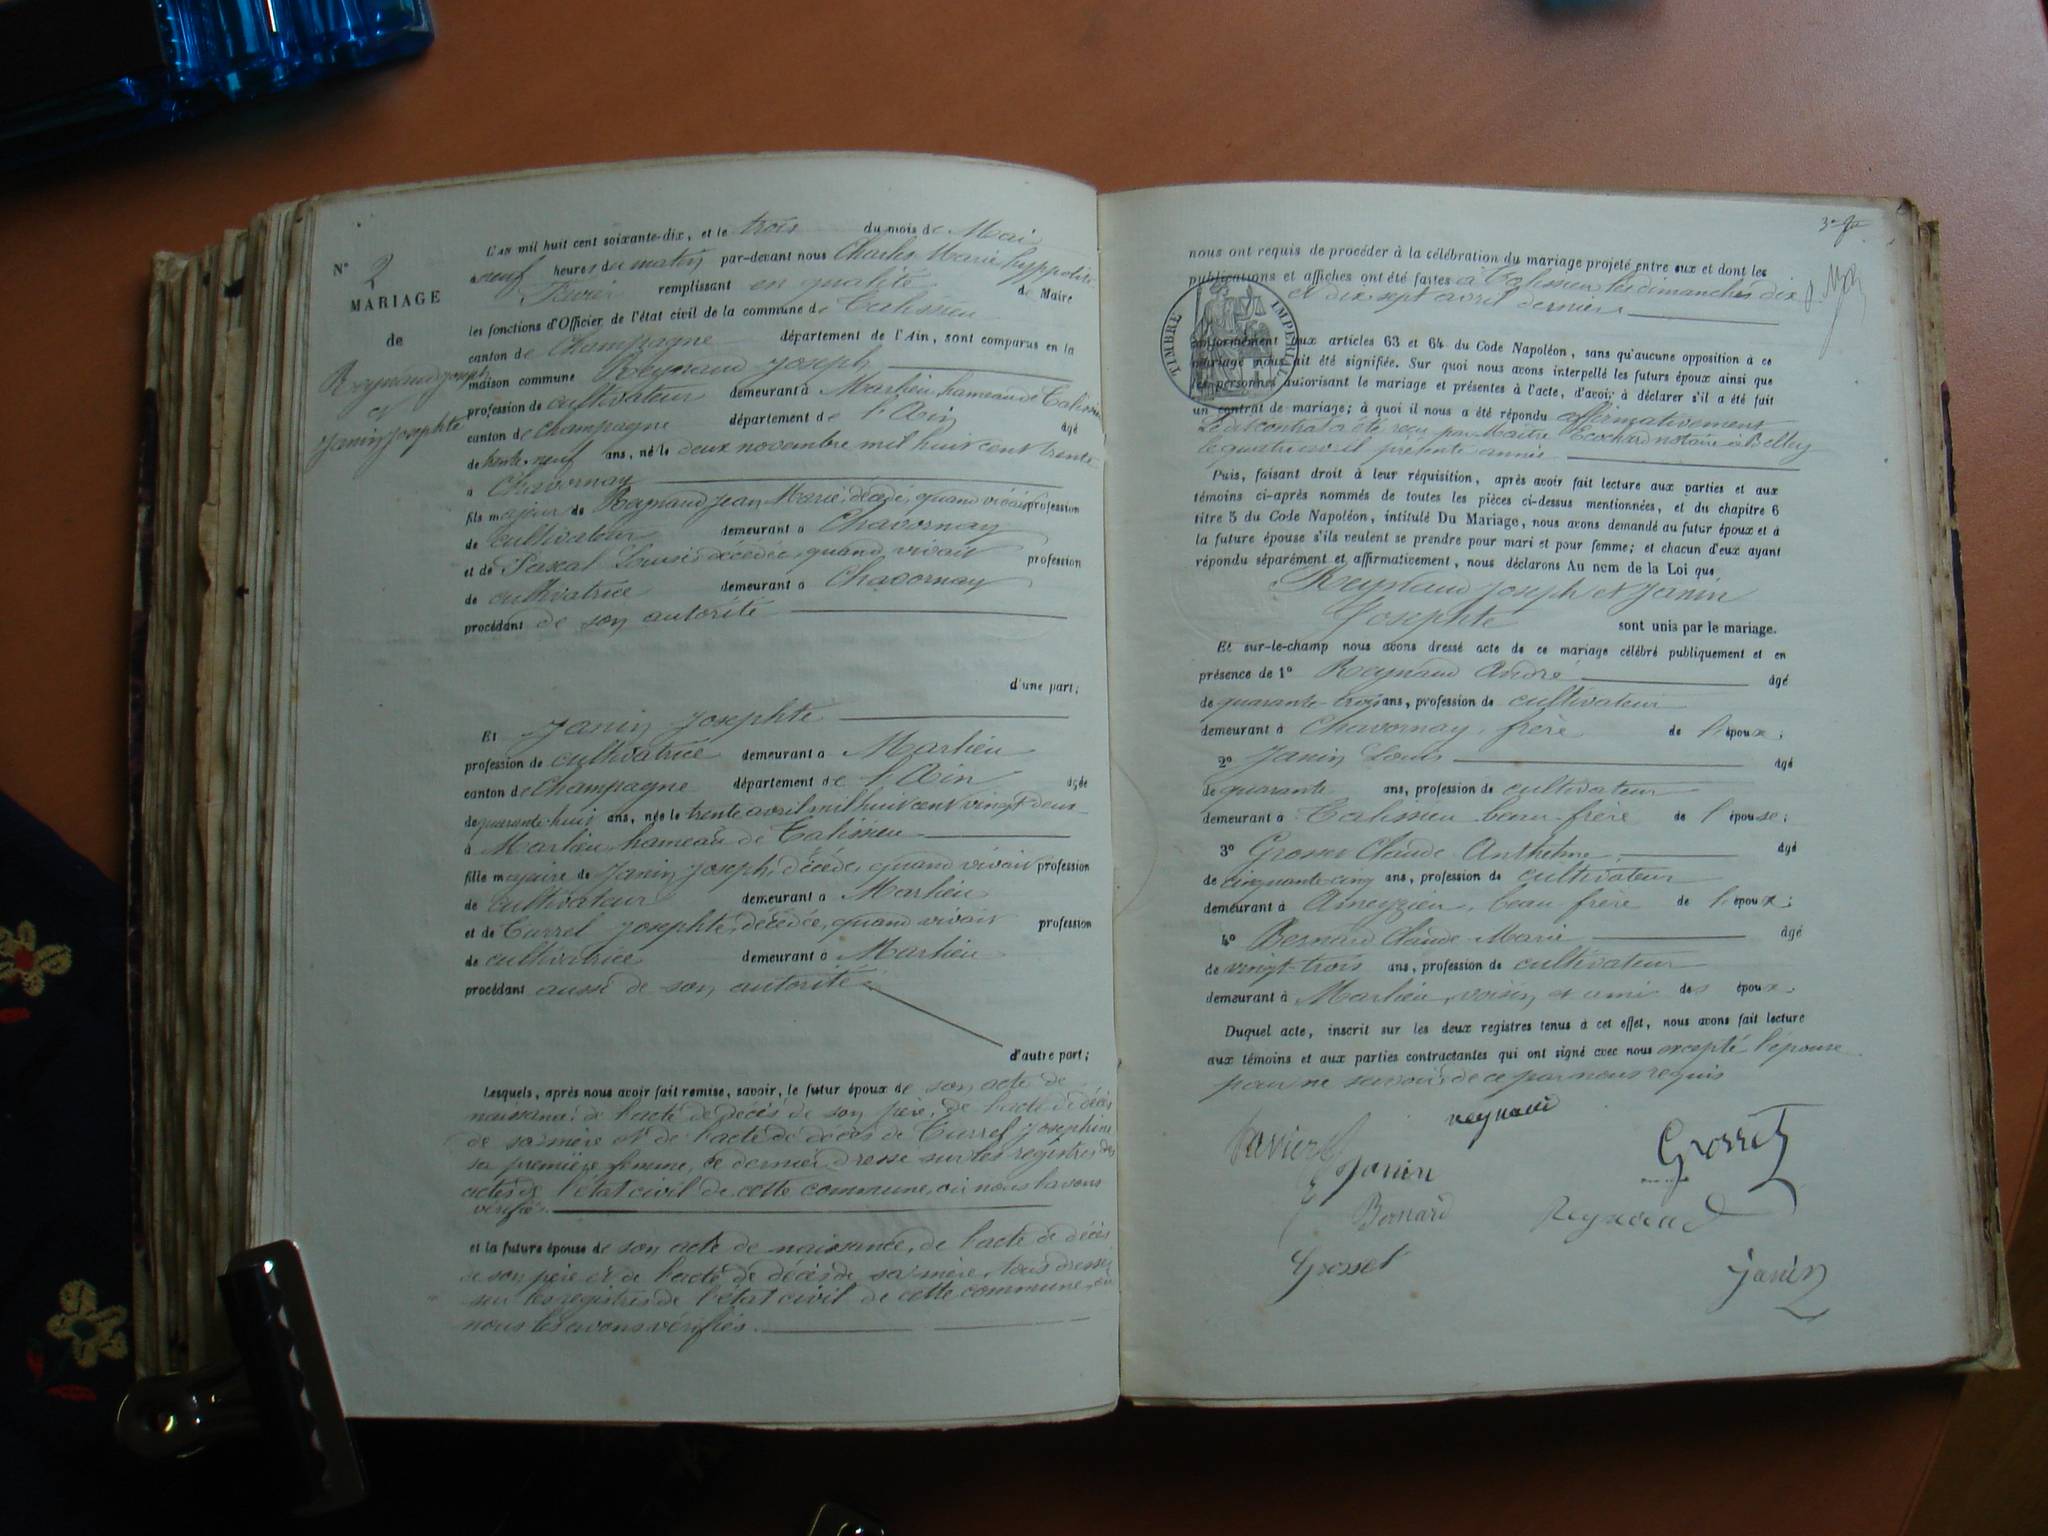 N° 2
MARIAGE
de
Reynaud Joseph
et
Janin Josephte
L'an mil huit cent soixante-dix, et le trois du mois de Mai
neuf heures du matin par-devant nous Charles Marie hyppolite
remplissant en qualité de Maire
les fonctions d'Officier de l'état civil de la commune de Talissieu
canton de Champagne département de l'Ain, sont comparus en la
maison commune Reynaud Joseph
profession de cultivateur demeurant à Marlieu hameau de Talissieu
canton de Champagne département de l'Ain âgé
de trente-neuf ans, né le deux novembre mil huit cent trente
à Chavornay
fils majeur de Reynaud Jean Marie, décédé, quand vivait profession
de cultivateur demeurant à Chavornay
et de Pascal Louise, décédée, quand vivait profession
de cultivatrice demeurant à Chavornay
procédant de son autorité
d'une part;
Et Janin Josephte
profession de cultivatrice demeurant à Marlieu
canton de Champagne département de l'Ain âgée
de quarante-huit ans, née le trente avril mil huit cent vingt deux
à Marlieu hameau de Talissieu
fille majeure de Janin Joseph, décédé, quand vivait profession
de cultivateur demeurant à Marlieu
et de Turrel Josephte, décédée, quand vivait profession
de cultivatrice demeurant à Marlieu
procédant aussi de son autorité
d'autre part;
Lesquels, après nous avoir fait remise, savoir, le futur époux de son acte de
naissance, de l'acte de décès de son père, de l'acte de décès
de sa mère et de l'acte de décès de Turrel Josephine
sa première femme, ce dernier dressé sur les registres des
actes de l'état civil de cette commune, où nous l'avons
vérifié.
et la future épouse de son acte de naissance, de l'acte de décès
de son père et de l'acte de décès de sa mère, tous dressés
sur les registres de l'état civil de cette commune, où
nous les avons vérifiés.
nous ont requis de procéder à la célébration du mariage projeté entre eux et dont les
publications et affiches ont été faites à Talissieu les dimanches dix
et dix sept avril derniers
TIMBRE IMPERIAL
conformément aux articles 63 et 64 du Code Napoléon, sans qu'aucune opposition à ce
mariage nous ait été signifiée. Sur quoi nous avons interpellé les futurs époux ainsi que
les personnes autorisant le mariage et présentes à l'acte, d'avoir à déclarer s'il a été fait
un contrat de mariage; à quoi il nous a été répondu affirmativement
Le dit contrat a été reçu par Maître Ecochard notaire à Belley
le quatre avril présente année
Puis, faisant droit à leur réquisition, après avoir fait lecture aux parties et aux
témoins ci-après nommés de toutes les pièces ci-dessus mentionnées, et du chapitre 6
titre 5 du Code Napoléon, intitulé Du Mariage, nous avons demandé au futur époux et à
la future épouse s'ils veulent se prendre pour mari et pour femme; et chacun d'eux ayant
répondu séparément et affirmativement, nous déclarons Au nom de la Loi que
Reynaud Joseph et Janin
Josephte sont unis par le mariage.
Et sur-le-champ nous avons dressé acte de ce mariage célébré publiquement et en
présence de 1° Reynaud André âgé
de quarante-trois ans, profession de cultivateur
demeurant à Chavornay, frère de l'époux;
2° Janin Louis âgé
de quarante ans, profession de cultivateur
demeurant à Talissieu beau-frère de l'épouse;
3° Grosset Claude Anthelme âgé
de cinquante-cinq ans, profession de cultivateur
demeurant à Ameyzieu, beau-frère de l'époux;
4° Bernard Claude-Marie âgé
de vingt-trois ans, profession de cultivateur
demeurant à Marlieu, voisin et ami des époux;
Duquel acte, inscrit sur les deux registres tenus à cet effet, nous avons fait lecture
aux témoins et aux parties contractantes qui ont signé avec nous excepté l'épouse
pour ne savoir de ce par nous requis
reynaud
Grosset
Janin
Bernard Reynaud
Grosset
janin